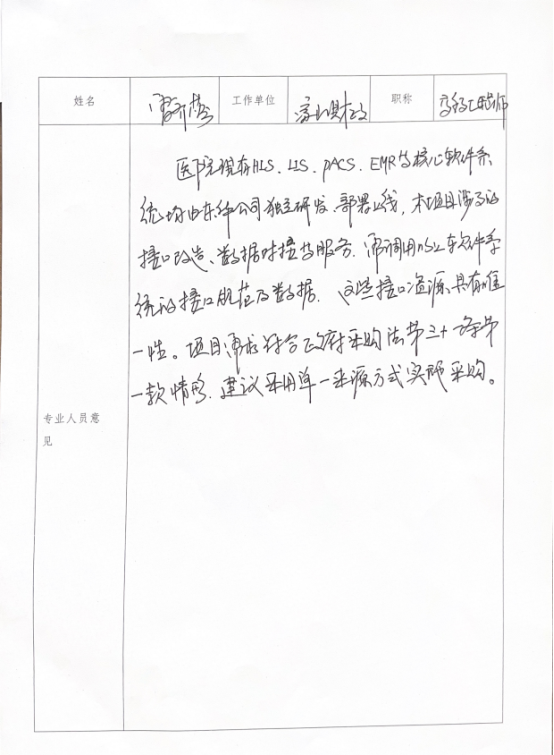 姓名 工作单位 职称 高级工程师
医院现有HIS、LIS、PACS、EMR等核心软件系
统均由东华公司独立研发、部署上线,本项目涉及的
接口改造、数据对接等服务,需调用以上软件系
统的接口规范及数据,这些接口资源具有唯
一性。项目需求符合政府采购法第三十一条第
一款情形,建议采用单一来源方式实施采购。
专业人员意
见